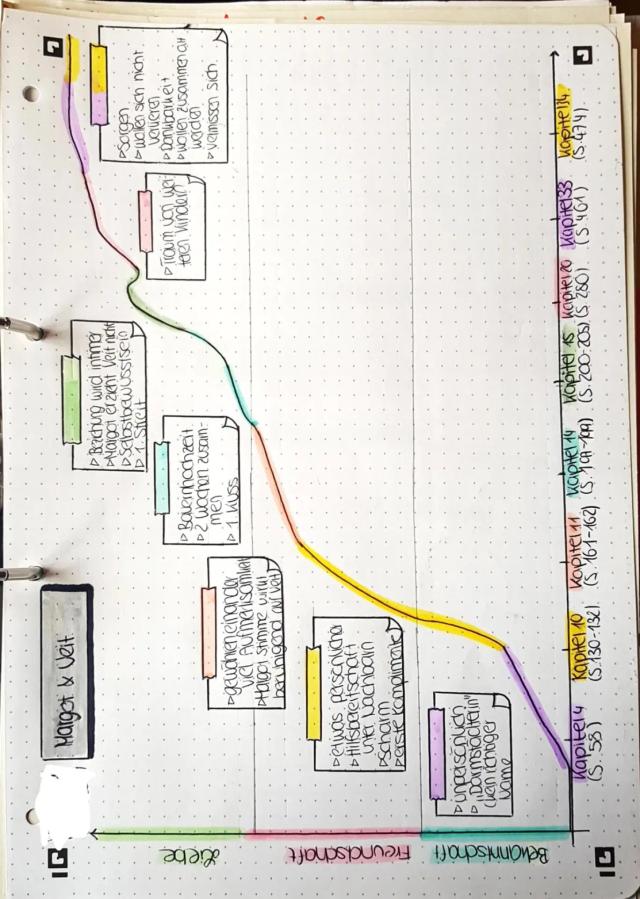 Margot & Veit
Liebe
Freundschaft
Bekanntschaft
▹ unpersönlich
▹ „Darmstädterin"
kein richtiger
Name
▹ etwas persönlicher
▹ Hilfsbereitschaft
unter Nachbarn
▹ Scharm
▹ erste Komplimente
▹ gewöhnen einander
▹ viel Aufmerksamkeit
▹ Margot Stimme wirkt
beruhigend auf Veit
▹ Bauernhochzeit
▹ 2 Wochen zusam-
men
▹ 1. Kuss
▹ Beziehung wird intimer
▹ Margot Veit
▹ Selbstbewusstsein
▹ 1. Streit
▹ Traum von wei-
teren Kindern
▹ Sorgen
▹ wollen sich nicht
verlieren
▹ Dankbarkeit
▹ wollen zusammen alt
werden
▹ vermissen sich
Kapitel 4
(S. 58)
Kapitel 10
(S. 130-132)
Kapitel 11
(S. 161-162)
Kapitel 14
(S. 191-194)
Kapitel 15
(S. 200-205)
Kapitel 20
(S. 280)
Kapitel 33
(S. 461)
Kapitel 34
(S. 474)